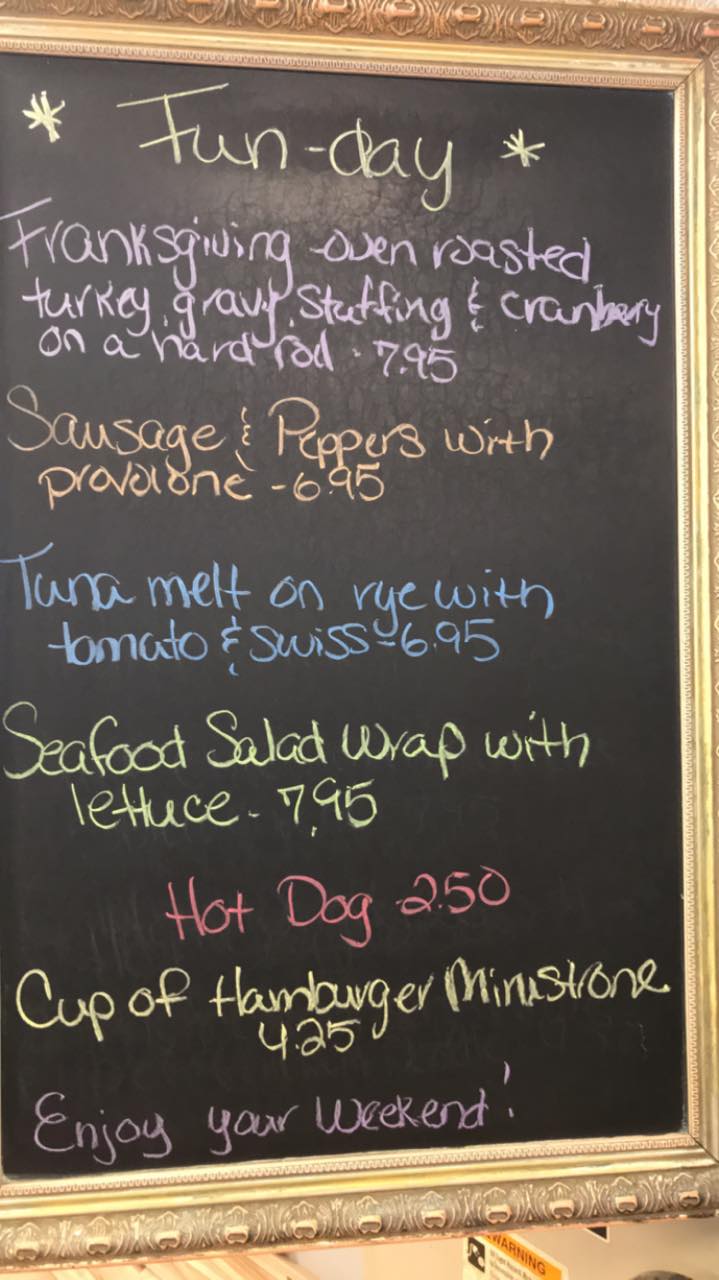 * Fun-day *
Franksgiving -oven roasted
turkey, gravy, stuffing & cranbery
on a hard roll - 7.95
Sausage & Peppers with
provolone - 6.95
Tuna melt on rye with
tomato & swiss - 6.95
Seafood Salad Wrap with
lettuce - 7.95
Hot Dog - 2.50
Cup of Hamburger Ministrone
4.25
Enjoy your Weekend!
WARNING